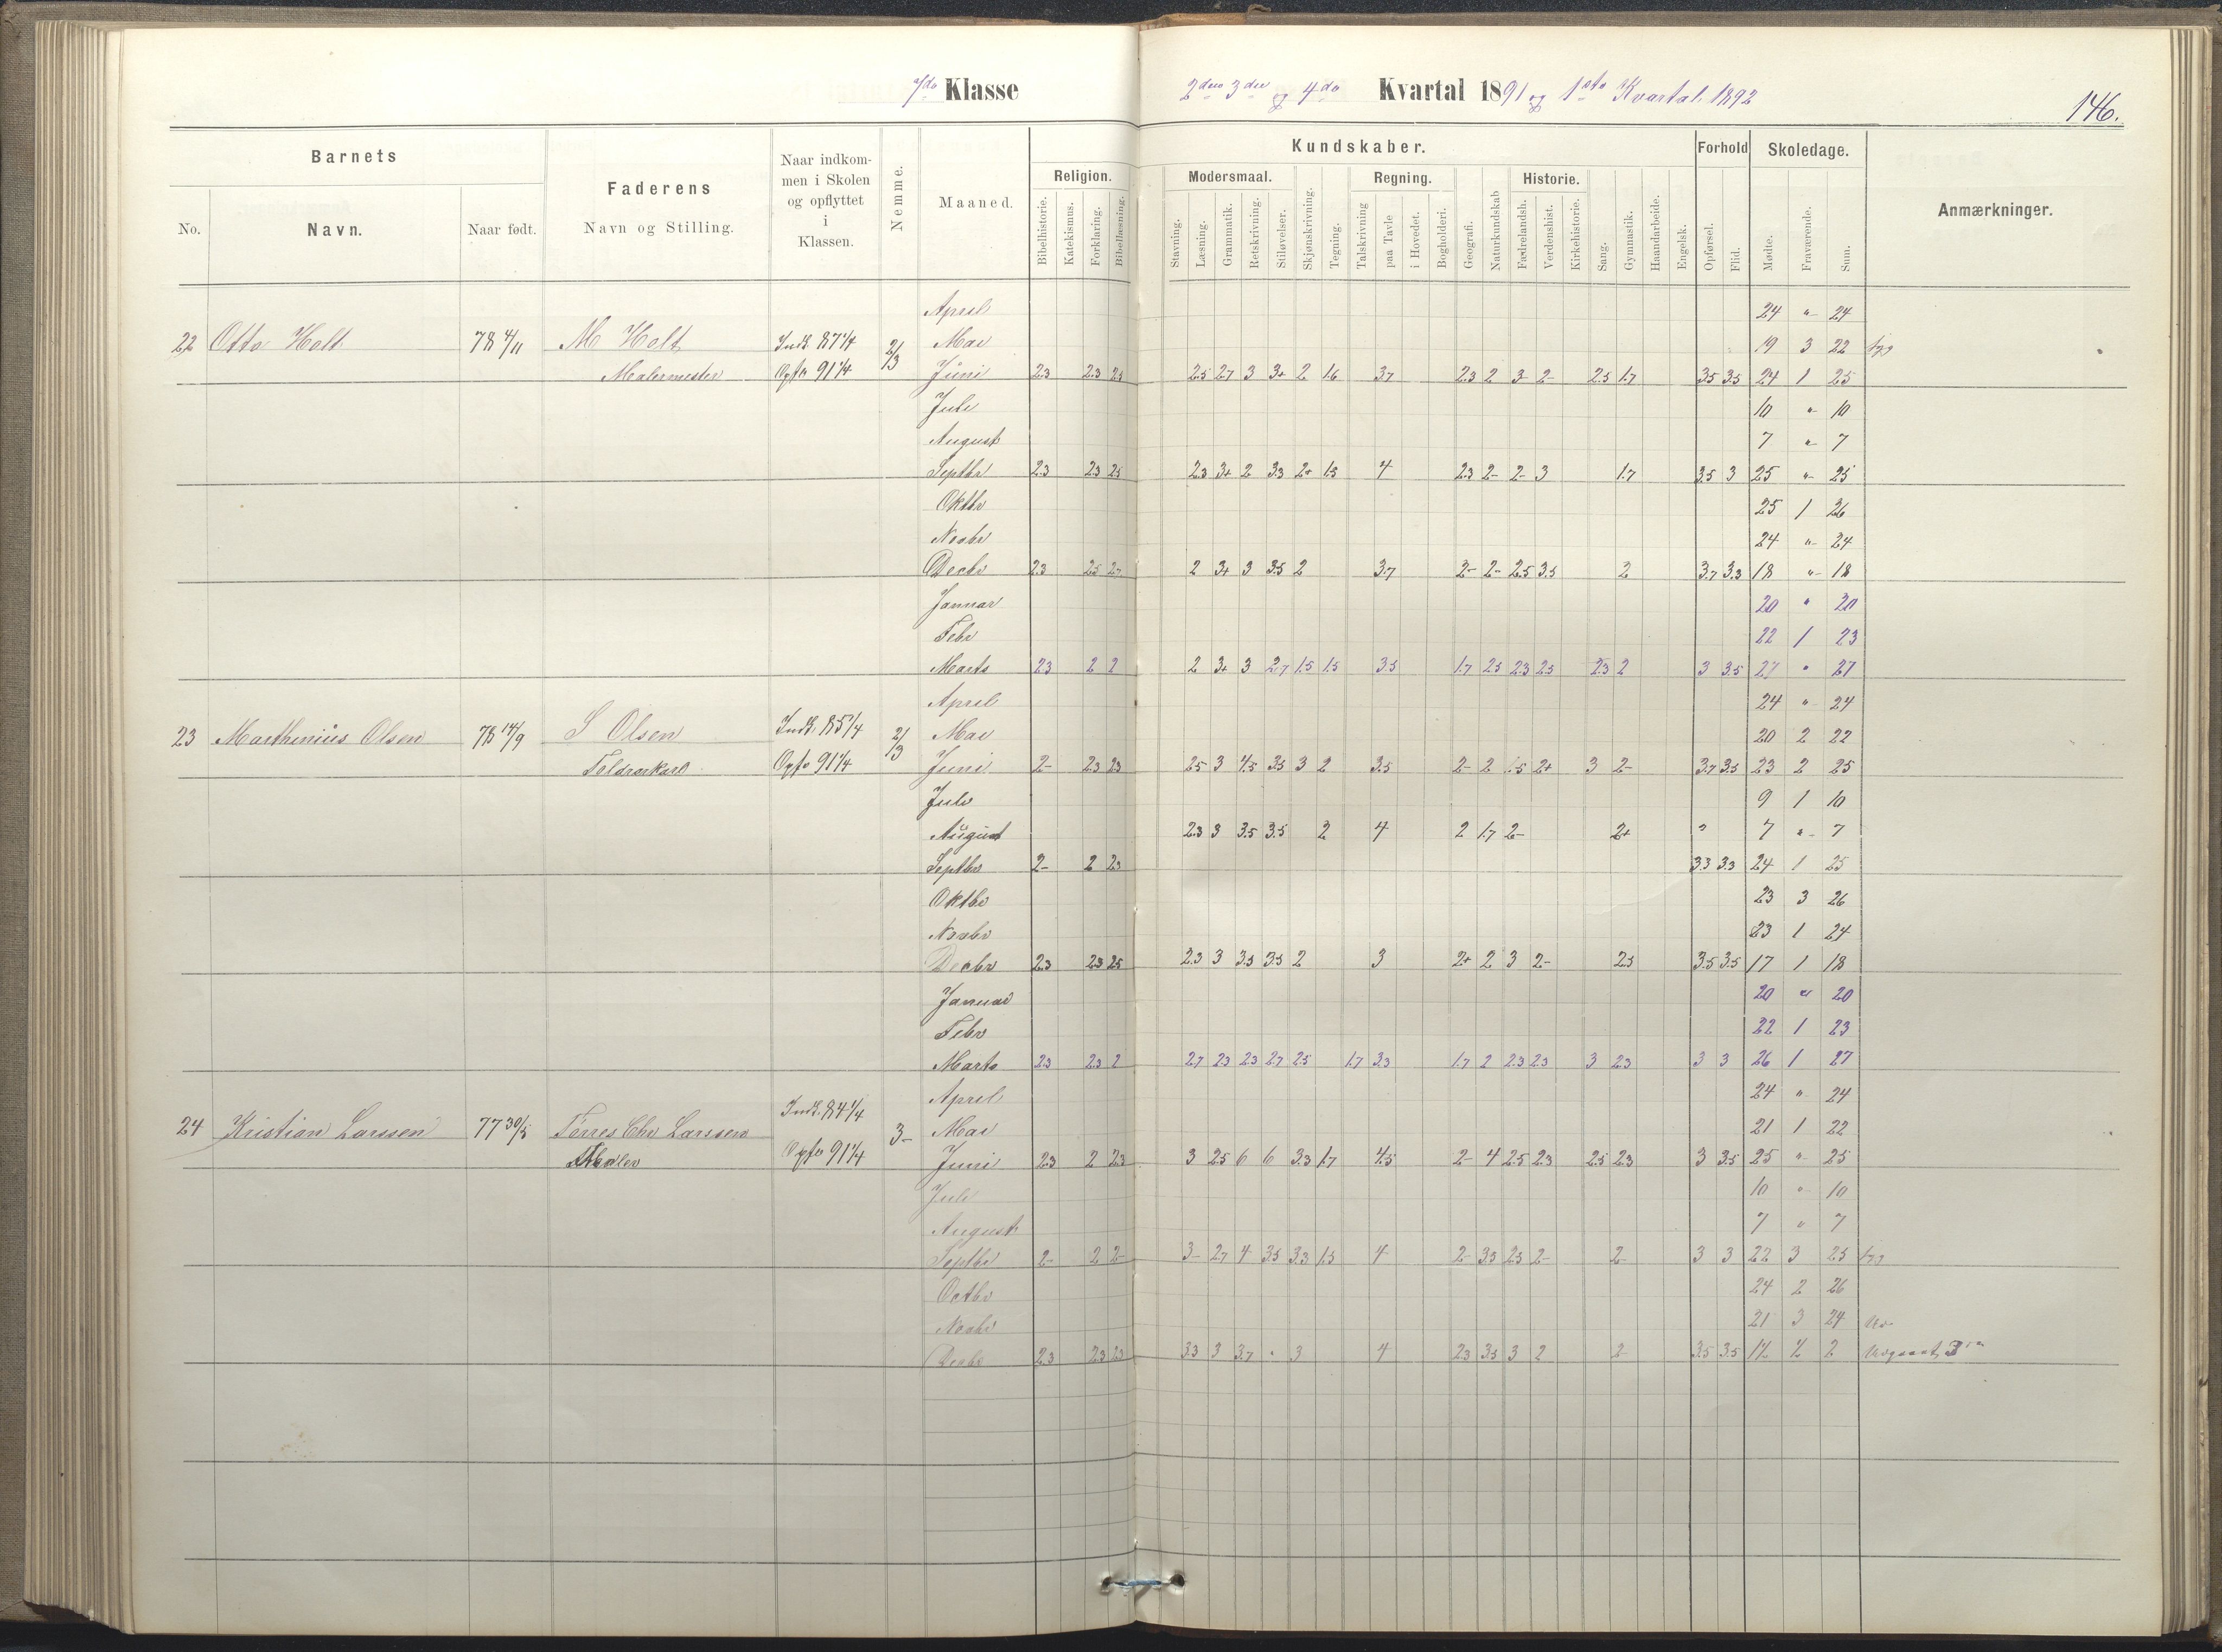 7de Klasse
2den 3die og 4de Kvartal 1891 og 1ste Kvartal 1892
146.
Barnets
Faderens
Navn og Stilling.
Naar indkommen i Skolen og opflyttet i Klassen.
Nemme.
Maaned.
Kundskaber.
Forhold
Skoledage.
Anmærkninger.
No.
Navn.
Naar født.
Religion.
Modersmaal.
Regning.
Historie.
Bibelhistorie.
Katekismus.
Forklaring.
Bibellæsning.
Stavning.
Læsning.
Grammatik.
Retskrivning.
Stiløvelser.
Skjønskrivning.
Tegning.
Talskrivning
paa Tavle
i Hovedet.
Bogholderi.
Geografi.
Naturkundskab
Fædrelandsh.
Verdenshist.
Kirkehistorie.
Sang.
Gymnastik.
Haandarbeide.
Engelsk.
Opførsel.
Flid.
Mødte.
Fraværende.
Sum.
April 24 " 24
22 Otto Holt 78 4/11 M Holt Indk 87 1/4 2/3 Mai 19 3 22 syg
Malermester Opfl 91 1/4 Juni 2.3 2.3 2.5 2.5 2.7 3 3+ 2 1.6 3.7 2.3 2 3- 2- 2.5 1.7 3.5 3.5 24 1 25
Juli 10 " 10
August 7 " 7
Septbr 2.3 2.3 2.5 2.3 3+ 2 3.3 2+ 1.5 4 2.3 2- 2- 3 1.7 3.5 3 25 " 25
Oktbr 25 1 26
Novbr 24 " 24
Decbr 2.3 2.5 2.7 2 3+ 3 3.5 2 3.7 2- 2- 2.5 3.5 2 3.7 3.3 18 " 18
Januar 20 " 20
Febr 22 1 23
Marts 2.3 2 2 2 3+ 3 2.7 1.5 1.5 3.5 1.7 2.5 2.3 2.5 2.3 2 3 3.5 27 " 27
April 24 " 24
23 Marthinius Olsen 78 14/9 S Olsen Indk. 85 1/4 2/3 Mai 20 2 22
Toldrorkarl Opfl 91 1/4 Juni 2- 2.3 2.3 2.5 3 4.5 3.5 3 2 3.5 2- 2 1.5 2+ 3 2- 3.7 3.5 23 2 25
Juli 9 1 10
August 2.3 3 3.5 3.5 2 4 2 1.7 2- 2+ 7 " 7
Septbr 2- 2 2.3 3.3 3.3 24 1 25
Oktbr 23 3 26
Novbr 23 1 24
Decbr 2.3 2.3 2.5 2.3 3 3.5 3.5 2 3 2+ 2 3 2- 2.5 3.5 3.5 17 1 18
Januar 20 " 20
Febr 22 1 23
Marts 2.3 2.3 2 2.7 2.3 2.3 2.7 2.5 1.7 3.3 1.7 2 2.3 2.3 3 2.3 3 3 26 1 27
April 24 " 24
24 Kristian Larssen 77 30/5 Tørres Chr Larssen Indk. 84 1/4 3- Mai 21 1 22
Opfl 91 1/4 Juni 2.3 2 2.3 3 2.5 6 6 3.3 1.7 4.5 2- 4 2.5 2.3 2.5 2.3 3 3.5 25 " 25
Juli 10 " 10
August 7 " 7
Septbr 2- 2 2- 3- 2.7 4 3.5 3.3 1.5 4 2- 3.5 2.5 2- 2- 3 3 22 3 25 syg
Octbr 24 2 26
Novbr 21 3 24
Decbr 2.3 2.3 2.3 3.3 3 3.7 " 3 4 2.3 3.5 3 2 2- 3.5 3.5